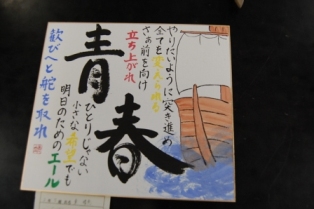 やりたいように突き進め
全てを変えられる
さあ前を向け
立ち上がれ
青春
ひとりじゃない
小さな希望でも
明日のためのエール
歓びへと舵を取れ